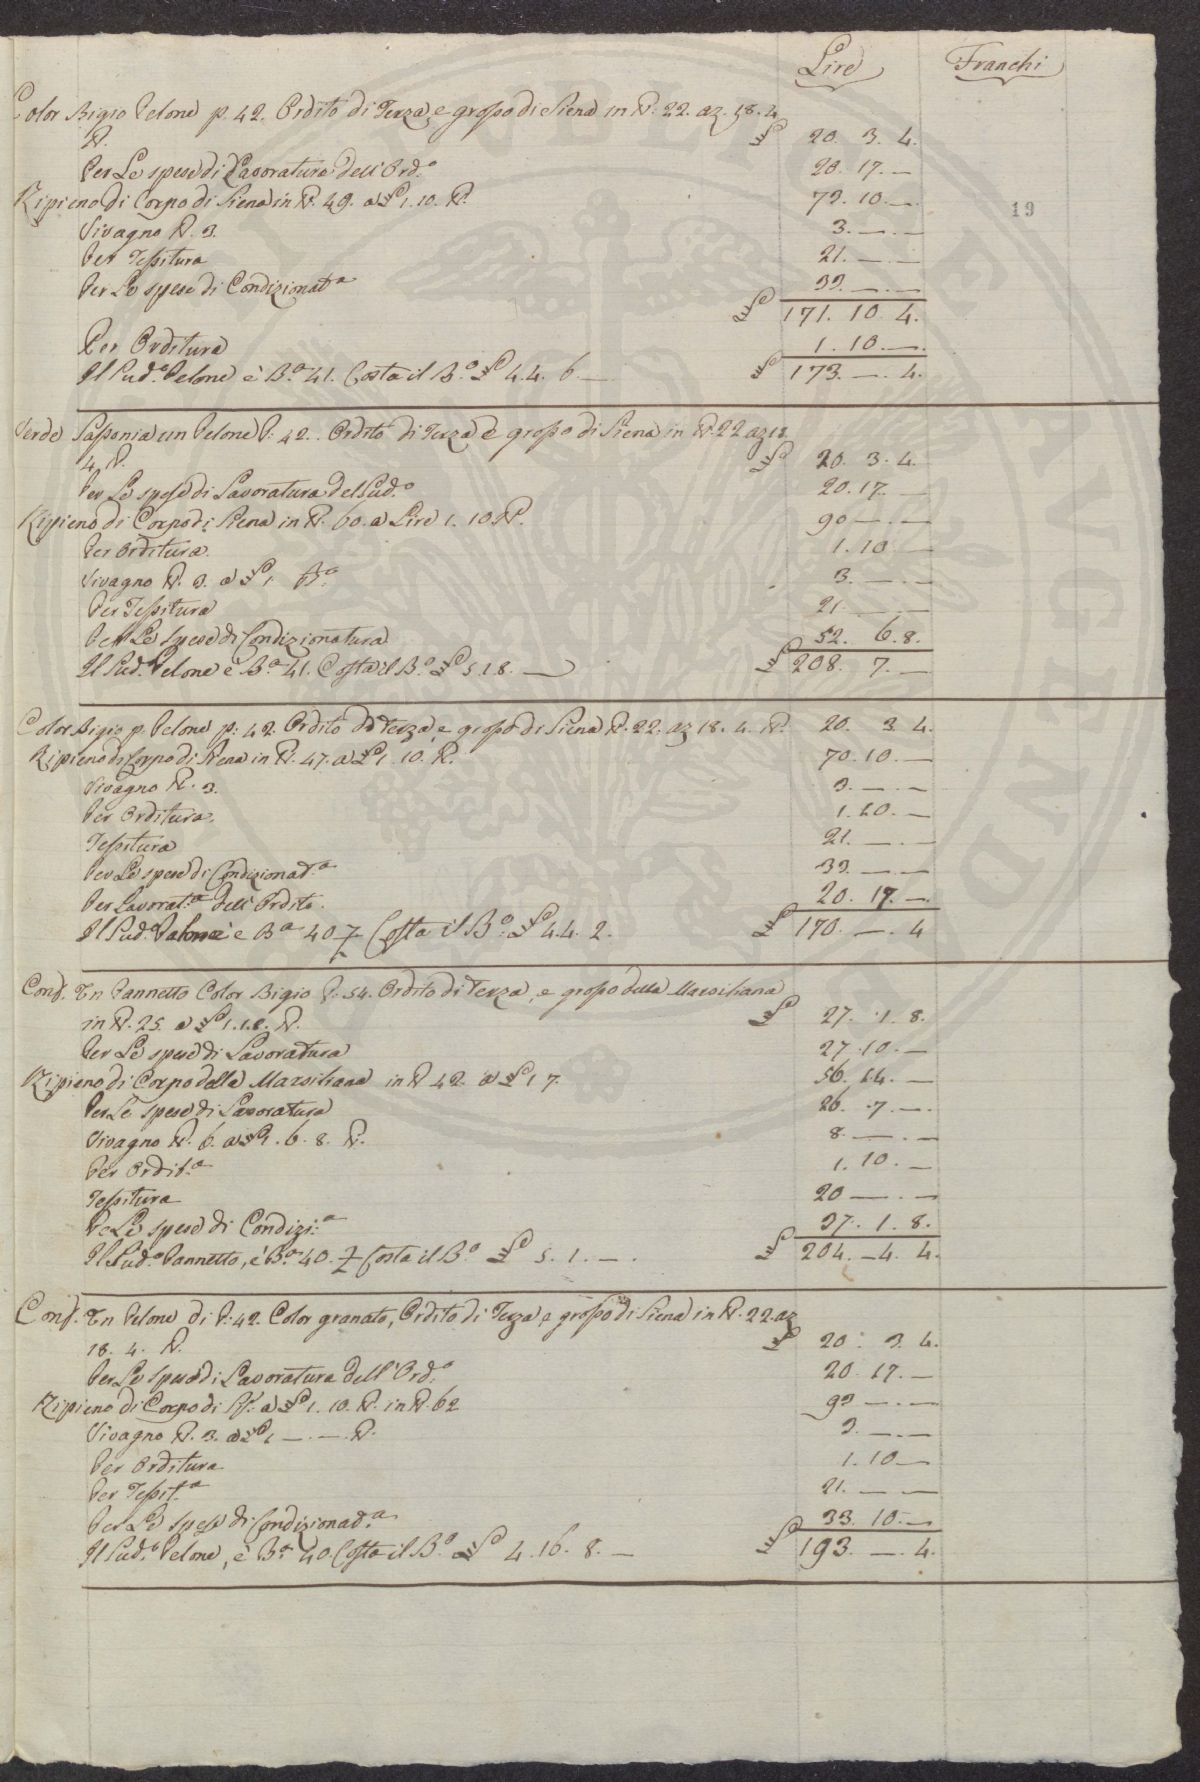 Lire Franchi
Color Bigio Pelone p. 42. Ordito di Terza, e grosso di Siena in lb. 22. az. 18. 4
lb. £ 20. 3. 4.
Per Le spese di Lavoratura dell'Ord.o 20. 17. —
Ripieno di Corpo di Siena in lb. 49. a £ 1. 10. lb. 73. 10. —
19
Vivagno lb. 3. 3. — . —
Per Tessitura 21. — . —
Per Le spese di Condizionat.a 33. — . —
£ 171. 10. 4.
Per Orditura 1. 10. —.
Il Sud.o Pelone è B.a 41. Costa il B.o £ 4. 4. 6 — £ 173. — . 4.
Verde Sassonia un Pelone P: 42. Ordito di Terza e grosso di Siena in lb. 22 az 18.
4. lb. £ 20. 3. 4.
Per Le spese di Lavoratura del Sud.o 20. 17. —
Ripieno di Corpo di Siena in lb. 60. a Lire 1. 10 lb. 90 — . —
Per Orditura. 1. 10 —
Vivagno lb. 3. a £ 1 3. — . —
Per Tessitura 21. — . —
Per Le spese di Condizionatura 52. 6. 8.
Il Sud.o Pelone è B.a 41. Costa il B.o £ 5. 1. 8. — £ 208. 7. —
Color Bigio p. Pelone p: 42. Ordito di Terza, e grosso di Siena lb. 22. az 18. 4. lb. 20. 3 4.
Ripieno di Corpo di Siena in lb. 47. a £ 1. 10. lb. 70. 10. —
Vivagno lb. 3. 3. — . —
Per Orditura. 1. 10. —
Tessitura 21. — . —
Per Le spese di Condizionat.a 33. — . —
Per Lavorat.a dell'Ordito. 20. 17. —.
Il Sud.o Pelone è B.a 40 Costa il B.o £ 4. 4. 2. £ 170. — . 4
Cons. Un Pannetto Color Bigio P: 54. Ordito di Terza, e grosso della Marsiliana
in lb. 25. a £ 1. 1. 8. lb. £ 27. 1. 8.
Per Le spese di Lavoratura 27. 10. —
Ripieno di Corpo della Marsiliana in lb 42. a £ 1 7. 56. 14. —
Per Le spese di Lavoratura 26. 7. —.
Vivagno lb. 6. a £ 1. 6. 8. lb. 8. — . —
Per Ordit.a 1. 10. —
Tessitura 20 — . —
Pe Le spese di Condizi:a 37. 1. 8.
Il Sud.o Pannetto, è B.a 40. Costa il B.o £ 5. 1. — . £ 204. — 4. 4.
Cons. Un Pelone di P: 42. Color granato, Ordito di Terza e grosso di Siena in lb. 22. az
18. 4. lb. £ 20. 3. 4.
Per Le spese di Lavoratura dell'Ord.o 20. 17. —
Ripieno di Corpo di S.: a £ 1. 10. lb. in lb. 62 93 — . —
Vivagno lb. 3. a £ 1 — . — lb. 3. — . —
Per Orditura 1. 10 —
Per Tessit.a 21. — . —
Per Le spese di Condizionat.a 33. 10. —
Il Sud.o Pelone, è B.a 40. Costa il B.o £ 4. 16. 8. — £ 193. — . 4.